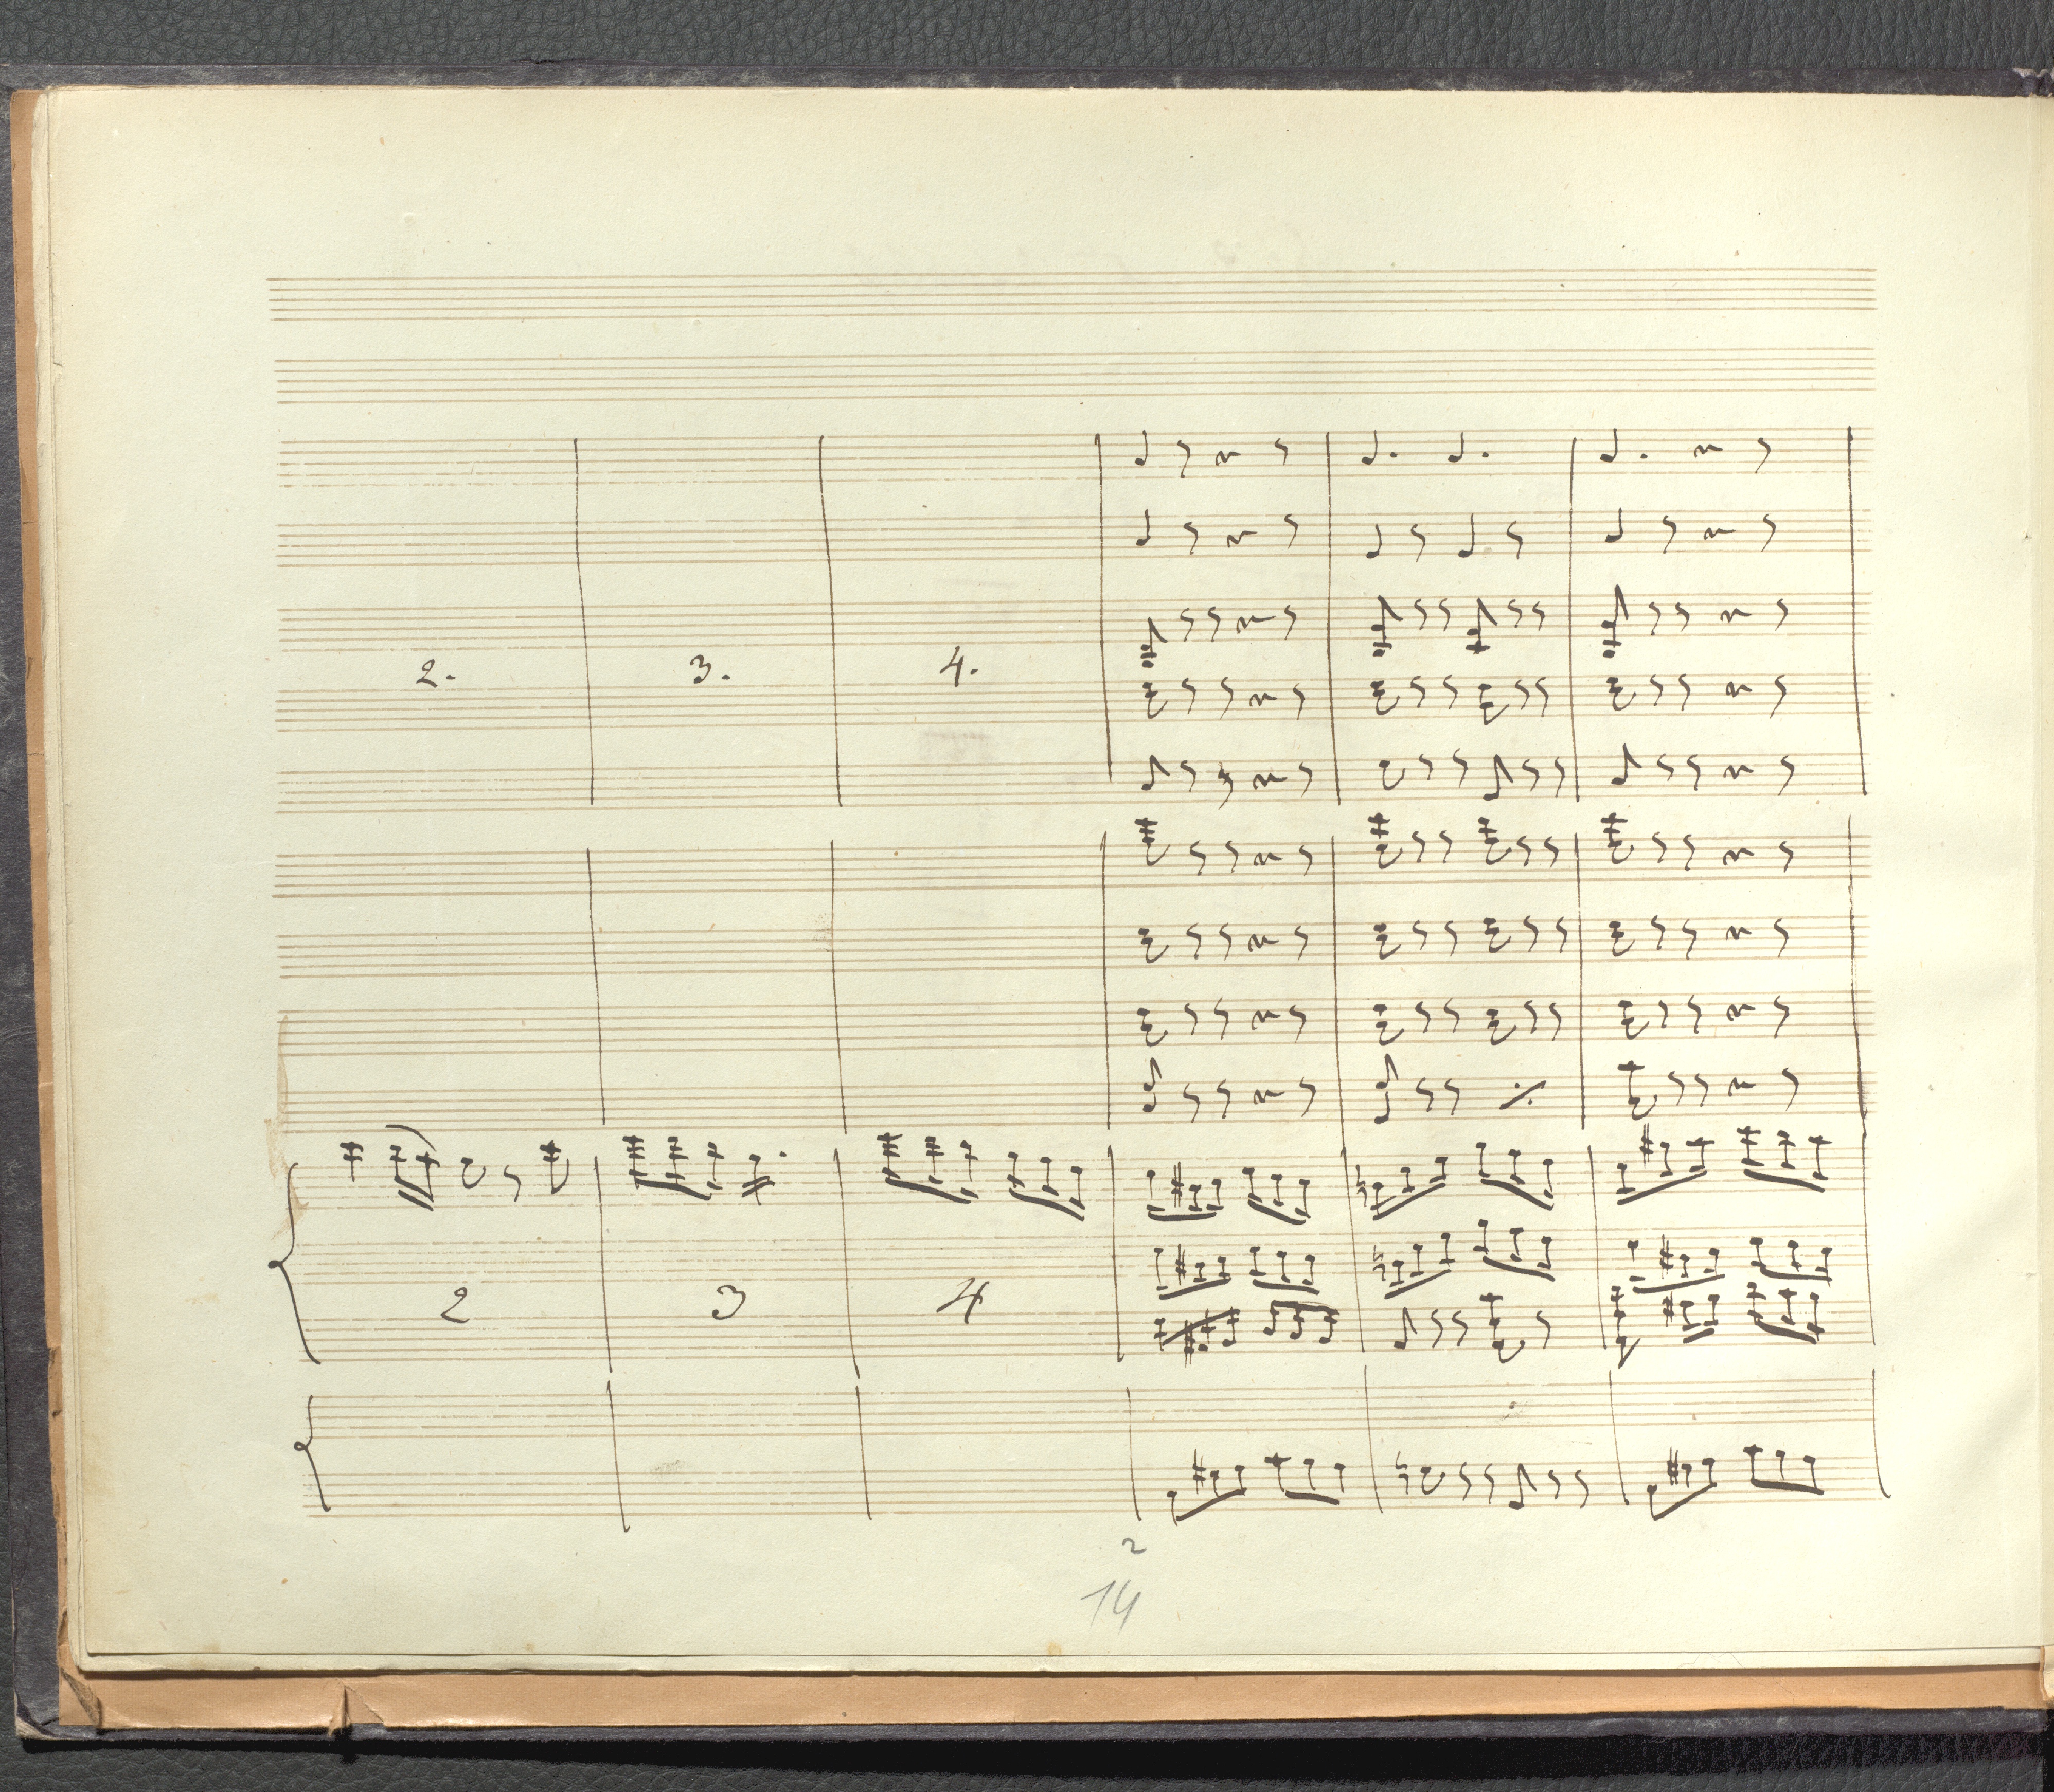 2. 3. 4.
2 3 4
2
14